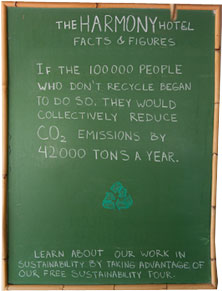 THE HARMONY HOTEL
FACTS & FIGURES
IF THE 100000 PEOPLE
WHO DON'T RECYCLE BEGAN
TO DO SO, THEY WOULD
COLLECTIVELY REDUCE
CO2 EMISSIONS BY
42000 TONS A YEAR.
LEARN ABOUT OUR WORK IN
SUSTAINABILITY BY TAKING ADVANTAGE OF
OUR FREE SUSTAINABILITY TOUR.